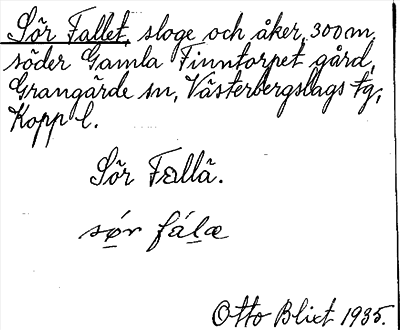 Sör Fallet, sloge och åker, 300 m.
söder Gamla Finntorpet gård,
Grangärde sn, Västerbergslags tg,
Kopp l.
Sör Fallä.
sø̱r fála̱e
Otto Blixt 1935.